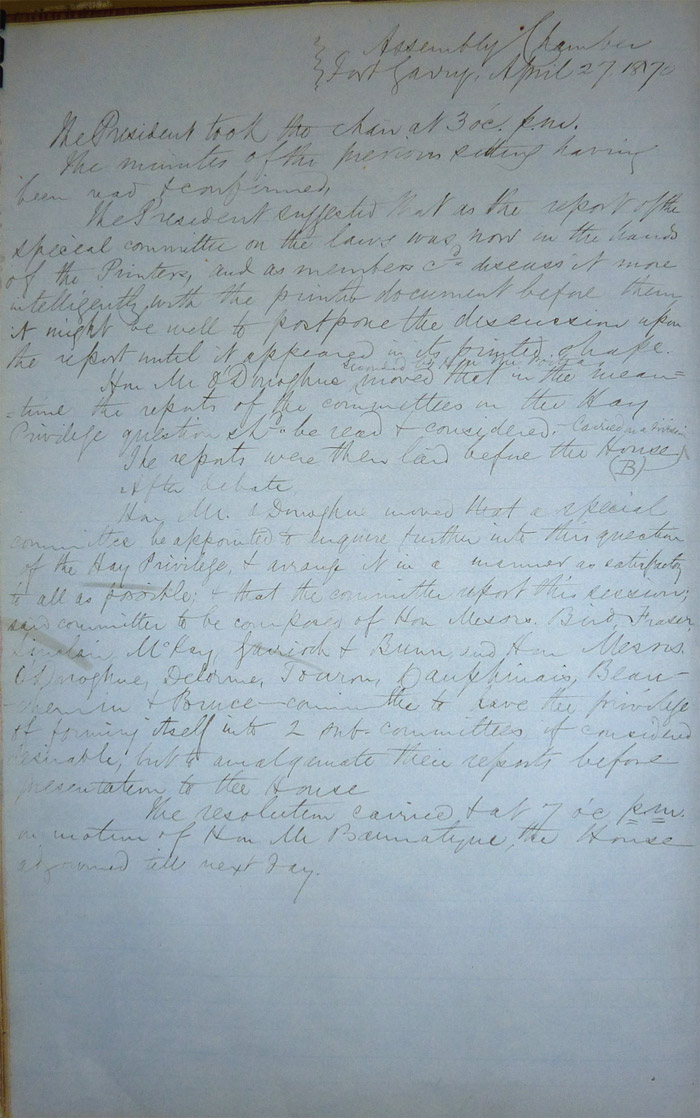 Assembly Chamber
Fort Garry, April 27 1870
The President took the chair at 3 o'c. p.m.
The minutes of the previous sitting having
been read & confirmed,
The President suggested that as the report of the
special committee on the laws was now in the hands
of the Printers, and as members cd. discuss it more
intelligently with the printed document before them
it might be well to postpone the discussion upon
the report until it appeared in its printed shape.
seconded by Hon Mr
Hon Mr O'Donoghue moved that in the mean-
-time the reports of the committees on the Hay
Privilege question shd. be read & considered. - Carried on a division
The reports were then laid before the House
(B)
After debate,
Hon. Mr. O'Donoghue moved that a special
committee be appointed to enquire further into this question
of the Hay Privilege, & arrange it in a manner as satisfactory
to all as possible; & that the committee report this session;
said committee to be composed of Hon Messrs. Bird, Fraser,
Sinclair, McKay, Garrioch & Bunn, and Hon Messrs.
O'Donoghue, Delorme, Touron, Dauphinais, Beau-
-chemin & Bruce - committee to have the privilege
of forming itself into 2 sub-committees if considered
desirable, but to amalgamate their reports before
presentation to the House
The resolution carried & at 7 o'c p.m.
on motion of Hon Mr Bannatyne, the House
adjourned till next day.